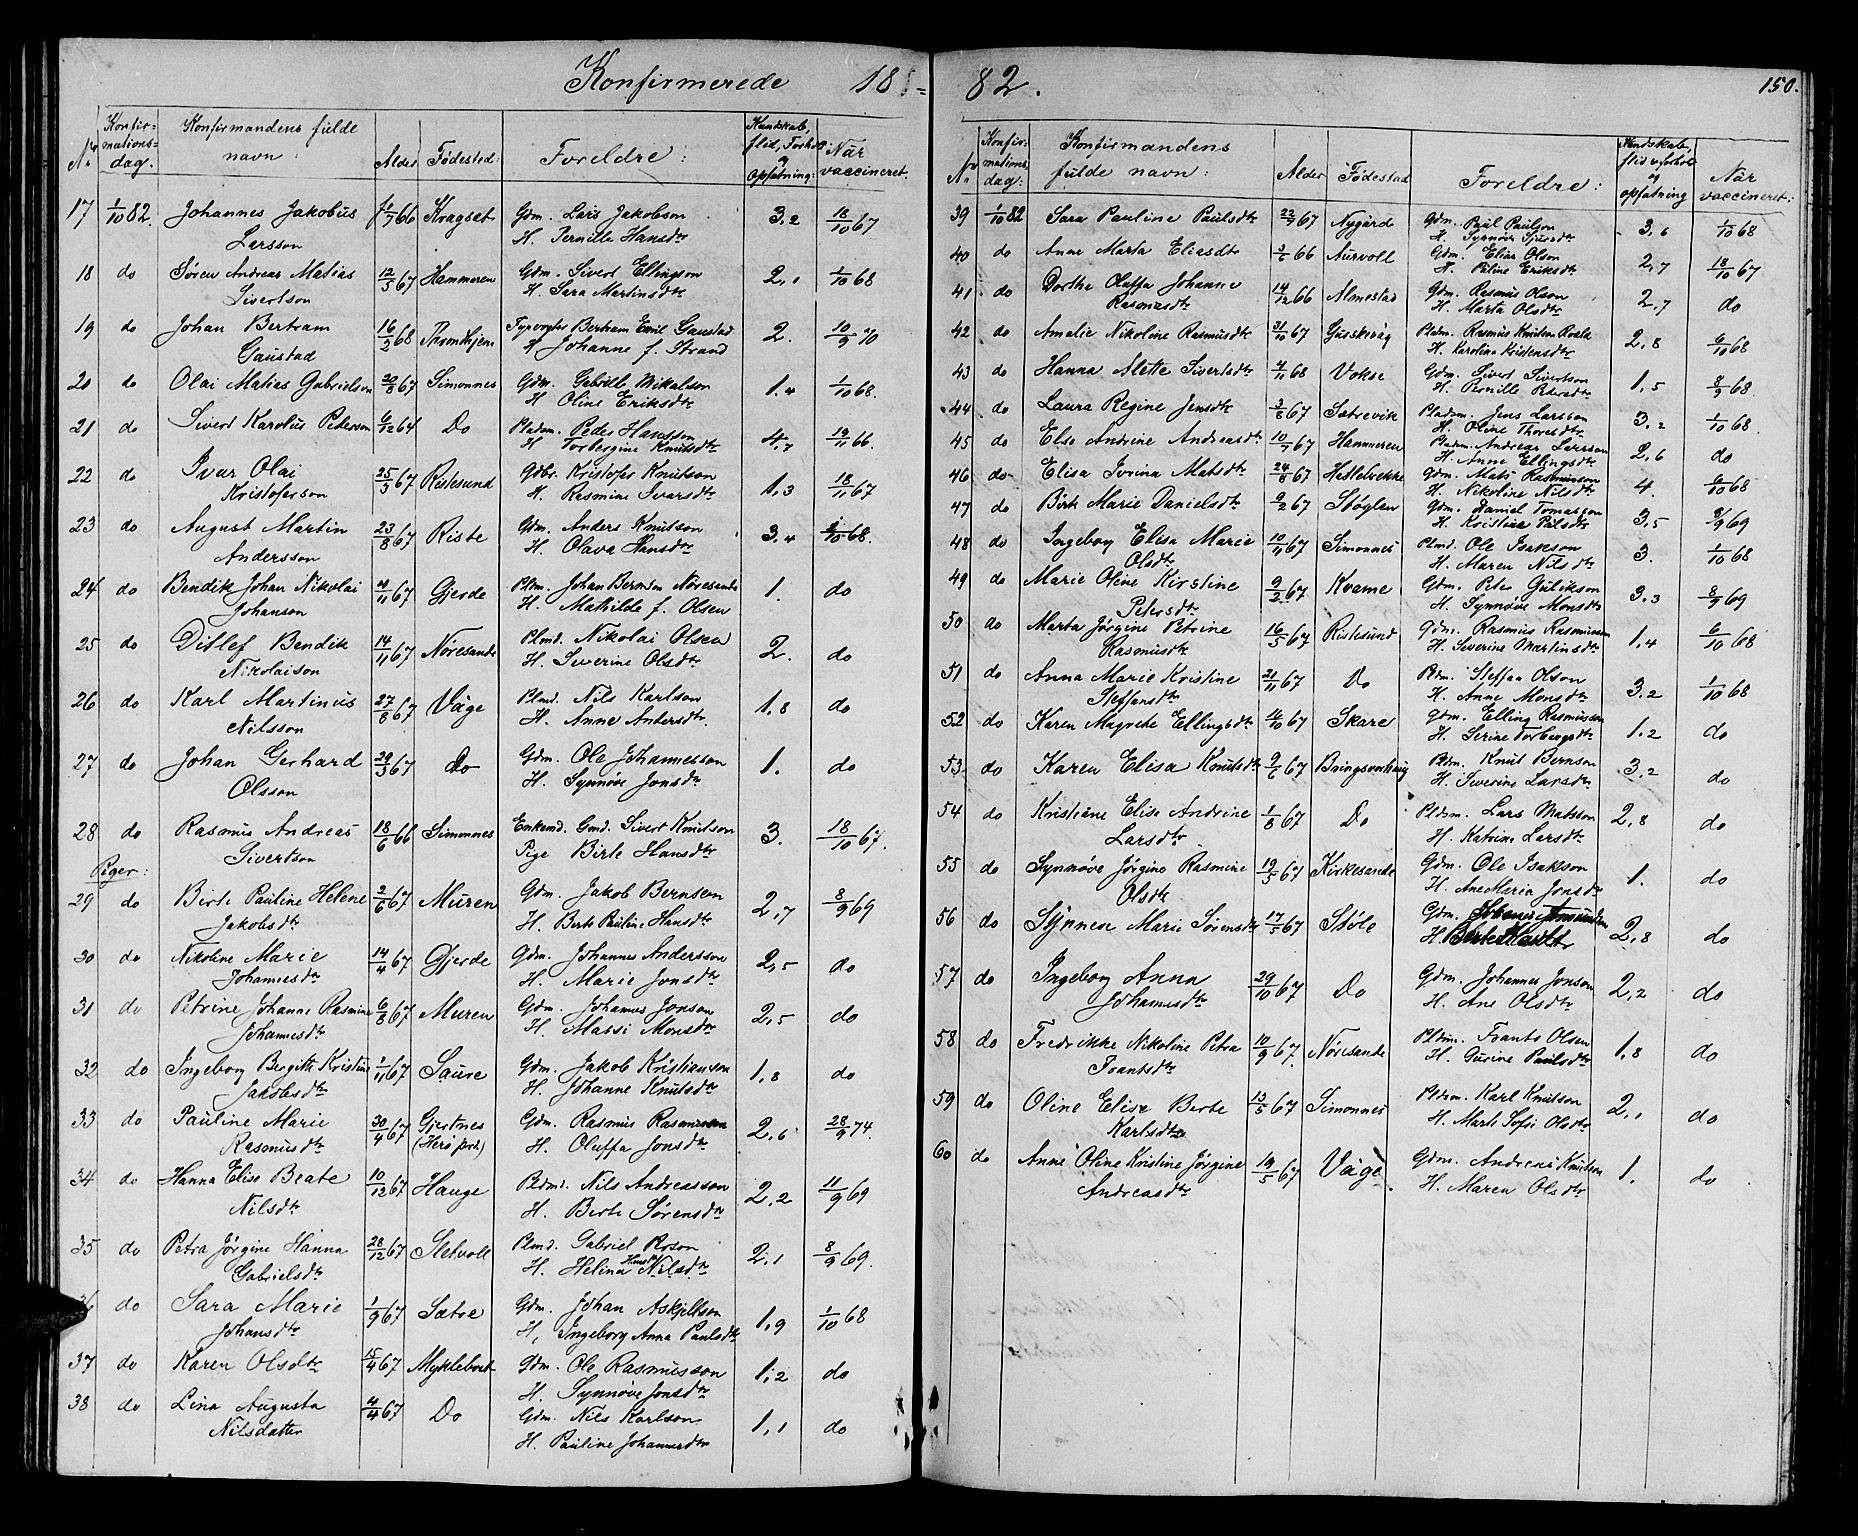 Konfirmerede 18
№ Konfirmationsdag. Konfirmandens fulde navn: Alder Fødested: Foreldre: Kundskab, flid, Forhold og Opfatning: Når vaccineret.
17 1/10 82. Johannes Jakobus 1/7 66 Kragset Gdm. Lars Jakobson 3,2 18/10 67
Larsson H. Pernille Hansdtr
18 do Søren Andreas Matias 12/5 67 Hammeren Gdm. Sivert Ellingson 2,1 1/10 68
Sivertson H. Sara Martinsdtr
19 do Johan Bertram 16/2 68 Throndhjem Bertram Emil Gaustad 2. 10/9 70
Gaustad H Johanne f. Strand
20 do Olai Matias Gabrielson 20/8 67 Simonnes Gdm. Gabriell Mikalson 1,4 1/10 68.
H Oline Eriksdtr
21 do Sivert Karolus Peterson 6/12 64 Do Pladsm. Peder Hansson 4,7 19/11 66.
H Torbergine Knutsdtr
22 do Ivar Olai 25/3 67 Ristesund Gdbr. Kristofer Knutson 1,3 18/11 67
Kristoferson H. Rasmine Ivarsdtr
23 do August Martin 23/8 67 Riste Gdm. Anders Knutson 3,4 1/10 68.
Andersson H. Olava Hansdtr
24 do Bendik Johan Nikolai 4/11 67 Gjerde Plm. Johan Nøresande 1. do
Johanson H. Mathilde f. Olsen
25 do Ditlef Bendik 14/11 67 Nøresande Plmd. Nikolai Olsen 2. do
Nikolaison H. Severine Olsdtr
26 do Karl Martinus 27/8 67 Våge Plmd. Nils Karlson 1,8 do
Nilsson H. Anne Andersdtr.
27 do Johan Gerhard 29/3 67 Do Gdm. Ole Johannesson 1. do
Olsson H. Synnøve Jonsdtr
28 do Rasmus Andreas 18/6 66 Simonnes Enkemd. Gmd. Sivert Knutson 3. 18/10 67.
Sivertson Pige Birte Hansdtr
Piger:
29 do Birte Pauline Helene 2/6 67 Muren Gdm. Jakob Bernsen 2,7 8/9 69
Jakobsdtr H. Berte Pauline Hansdtr
30 do Nikoline Marie 14/4 67 Gjerde Gdm. Johannes Andersson 2,5 do
Johannesdtr H. Marie Jonsdtr
31 do Petrine Johanne Rasmine 6/8 67 Muren Gdm. Johannes Jonson 2,5 do
Johannesdtr H. Massi Monsdtr
32 do Ingeborg Birgitte Kristine 1/11 67 Saure Gdm. Jakob Kristianson 1,8 do
Jakobsdtr H. Johanne Knutsdtr
33 do Pauline Marie 30/4 67 Gjertnes Gdm. Rasmus Rasmusson 2,6 28/9 74.
Rasmusdtr (Herø prk.) H. Oluffa Jonsdtr
34 do Hanna Elise Beate 10/12 67 Hauge Pldmd. Nils Andreasson 2,2 11/9 69
Nilsdtr H. Berte Sørensdtr
35 do Petra Jørgine Hanna 28/12 67 Sletvoll Plmd. Gabriel 2,1 8/9 69.
Gabrielsdtr H. Helina Nilsdtr
36 do Sara Marie 1/9 67 Sætre Gdm. Johan Askjellson 1,9 1/10 68
Johansdtr H, Ingeborg Anna Paulsdtr
37 do Karen Olsdtr 15/4 67 Myklebost Gdm. Ole Rasmusson 1,2 do
H. Synnøve Jonsdtr
38 do Lina Augusta 4/4 67 Do Gdm. Nils Karlson 1,1 do
Nilsdatter H. Pauline Johannesdtr
82. 150.
№ Konfirmationsdag: Konfirmandens fulde navn: Alder Fødestad Foreldre: Kundskab, flid, forhold og opfatning Når vaccineret:
39 1/10 82 Sara Pauline Paulsdtr 22/9 67 Nygård Gdm. Paul Paulson 3,6 1/10 68
H. Synnøve Sjursdtr
40 do Anne Marta Eliasdtr 3/5 66 Aurvoll Gdm. Elias Olson 2,7 18/10 67
H. Peline Eriksdtr
41 do Dorthe Oluffa Johanne 14/12 66 Almestad Gdm. Rasmus Olson 2,7 do
Rasmusdtr H. Marta Olsdtr
42 do Amalie Nikoline Rasmusdtr 31/10 67 Gurskevåg Pladm. Rasmus Knutson Roald 2,8 6/10 68
H. Karolina Kristensdtr
43 do Hanna Alette Sivertsdtr 4/11 68 Vokse Gdm. Sivert Sivertson 1,5 8/9 68
H. Pernille Pedersdtr
44 do Laura Regine Jensdtr 3/8 67 Sætrevik Pladsm. Jens Larsson 3,2 1/10 68.
H. Oline Thoresdtr
45 do Else Andrine Andreasdtr 10/7 67 Hammeren Pladm. Andreas Larsson 2,6 do
H. Anne Ellingsdtr
46 do Elisa Ivrina Matsdtr 24/8 67 Hatlebrekke Gdm. Mats Rasmusson 4. 6/10 68
H. Nikoline Nilsdtr
47 do Birte Marie Danielsdtr 9/2 67 Støylen Gdm. Daniel Tomasson 3,5 8/9 69
H. Kristine Pålsdtr
48 do Ingeborg Elisa Marie 10/11 67 Simonnes Plmd. Ole Isakson 3. 1/10 68
Olsdtr H. Maren Nilsdtr
49 do Marie Oline Kirstine 9/2 67 Kvame Gdm. Peter Gulikson 3,3 8/9 69
Petersdtr H. Synnøve Monsdtr
50 do Marta Jørgine Petrine 16/5 67 Ristesund Gdm. Rasmus Rasmusson 1,4 6/10 68
Rasmusdtr H. Severine Martinsdtr
51 do Anna Marie Kristine 21/11 67 Do Pldm. Steffan Olson 3,2 1/10 68
Steffansdtr H. Anne Monsdtr
52 do Karen Magrete Ellingsdtr 14/10 67 Skare Gdm. Elling Rasmusson 1,2 do
H. Serine Torbergsdtr
53 do Karen Elisa Knutsdtr 9/6 67 Bringsvorhaug Pldm. Knut Bernson 3,2 do
H. Severine Larsdtr
54 do Kristiane Elise Andrine 1/8 67 Do Pldsm. Lars Matsson 2,8 do
Larsdtr H. Katrine Larsdtr
55 do Synnøve Jørgine Rasmine 19/5 67 Kirkesande Gdm. Ole Isakson 1. do
Olsdtr H. Ane Maria Jonsdtr
56 do Synneve Marie Sørensdtr 17/5 67 Støle Gdm. 2,8 do
H. Berte
57 do Ingeborg Anna 29/10 67 Do Gdm. Johannes Jonson 2,2 do
Johannesdtr H. Ane Olsdtr
58 do Fredrikke Nikoline Petra 10/9 67. Nøresande Pldsm. Frants Olsen 1,8 do
Frantsdtr H. Gurine Paulsdtr
59 do Oline Elise Berte 13/5 67 Simonnes Pldsm. Karl Knutson 2,1 do
Karlsdtr H. Marte Sofie Olsdtr
60 do Anne Oline Kristine Jørgine 19/5 67 Våge Gdm. Andreas Knutson 1. do
Andreasdtr H. Maren Olsdtr